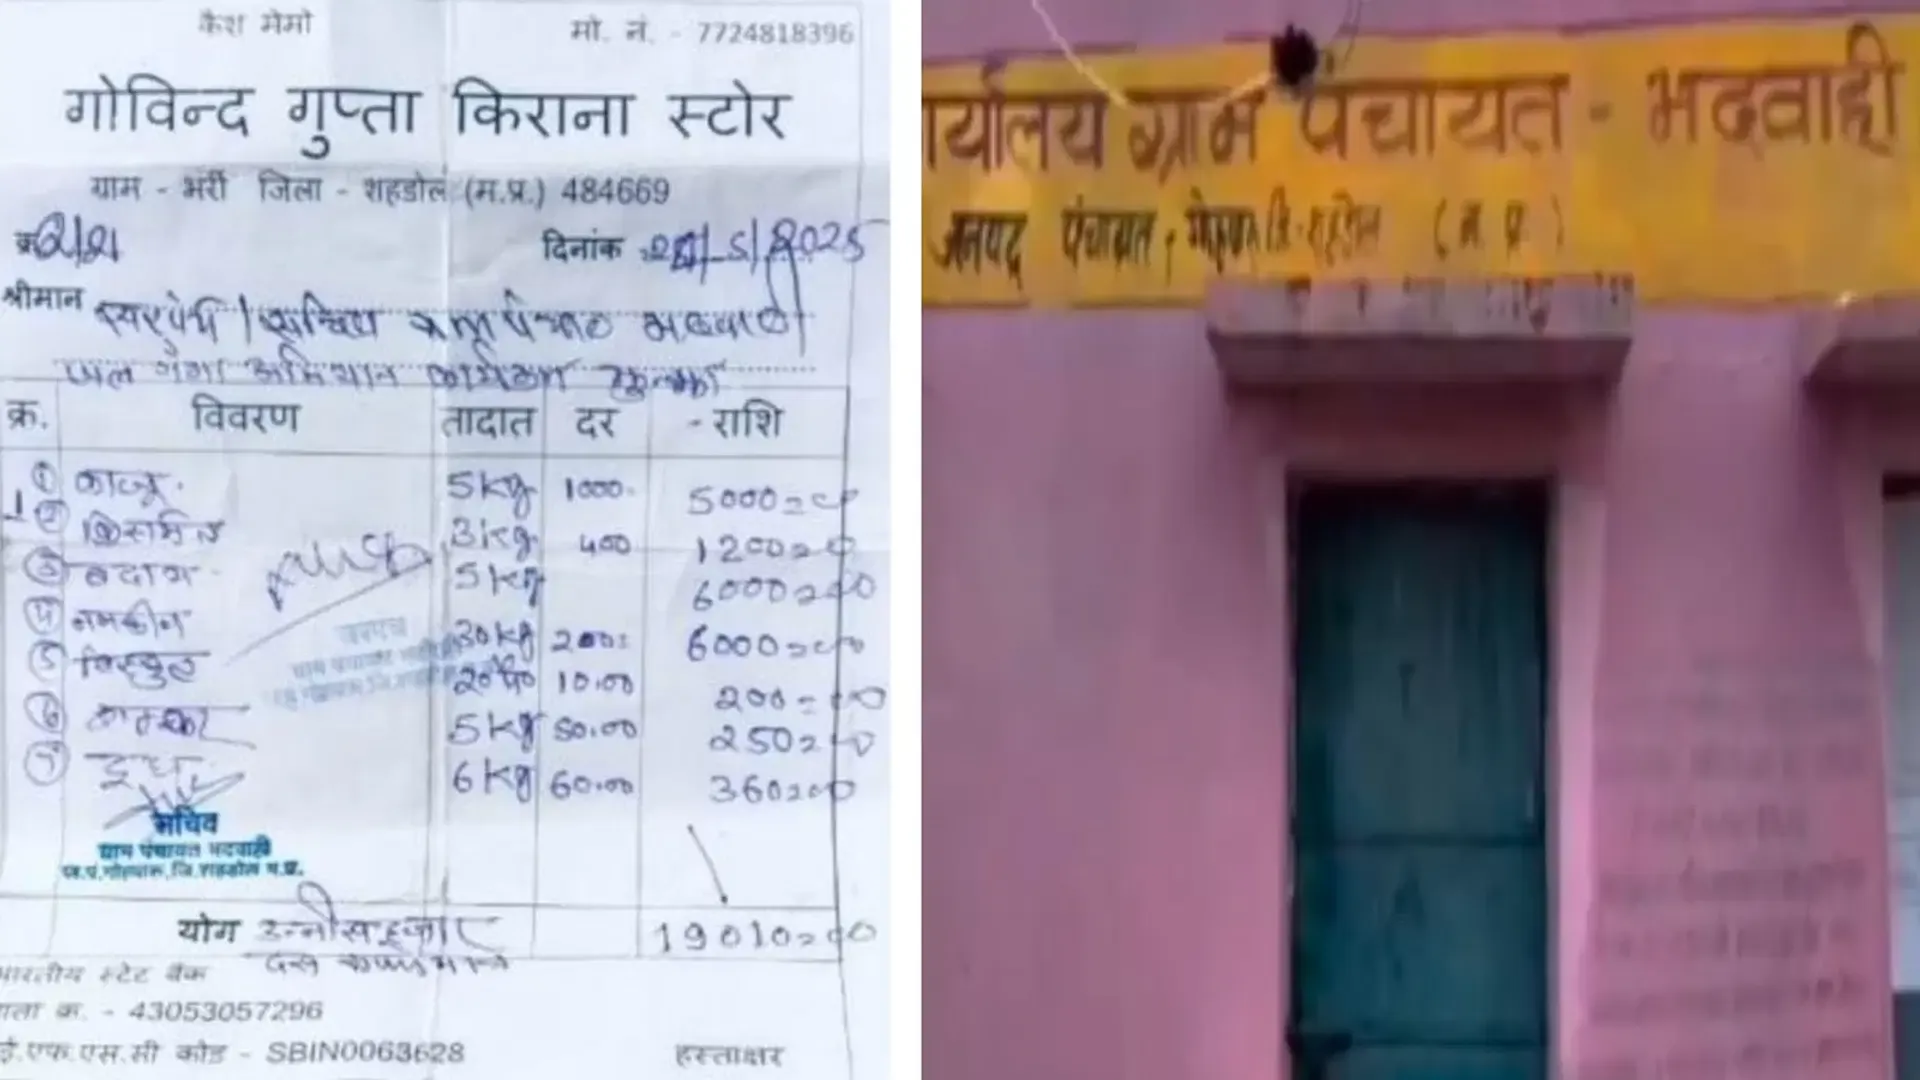 कैश मेमो मो. नं. - 7724818396
गोविन्द गुप्ता किराना स्टोर
ग्राम - भर्री जिला - शहडोल (म.प्र.) 484669
क्र. दिनांक
श्रीमान सरपंच / सचिव ग्राम पंचायत भदवाही
जल गंगा अभियान कार्यक्रम
क्र. विवरण तादात दर - राशि
① काजू 5kg 1000 5000=00
② किसमिस 3kg 400 1200=00
③ बदाम 5kg 6000=00
④ नमकीन 30kg 200 6000=00
⑤ बिस्कुट 20 10.00 200=00
⑥ 5kg 50.00 250=00
⑦ दूध 6kg 60.00 360=00
सरपंच
ग्राम पंचायत
सचिव
ग्राम पंचायत भदवाही
ज.पं.गोहपारू,जि.शहडोल म.प्र.
योग उन्नीस हजार 19010=00
दस रूपये मात्र
भारतीय स्टेट बैंक
खाता क. - 43053057296
ई.एफ.एस.सी कोड - SBIN0063628 हस्ताक्षर
ार्यालय ग्राम पंचायत - भदवाही
जनपद पंचायत, गोहपारू जि.-शहडोल (म.प्र.)